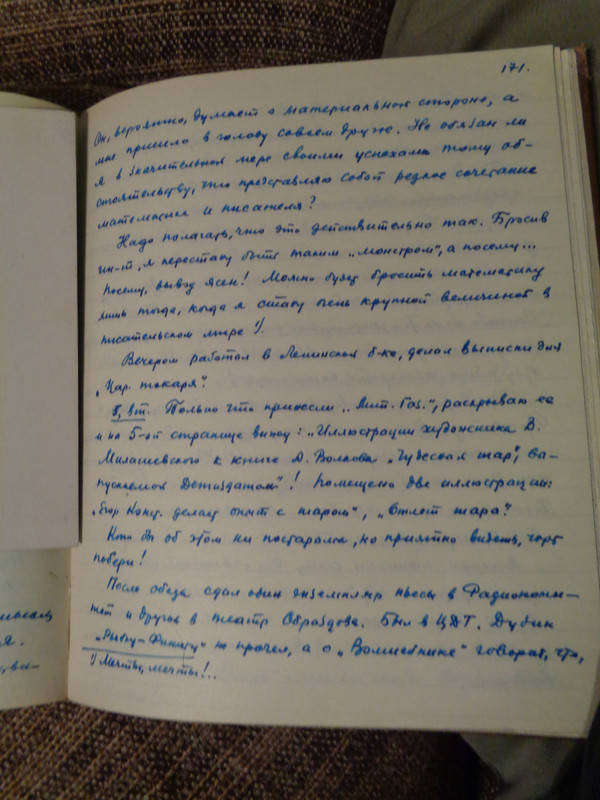 171.
Он, вероятно, думает о материальной стороне, а
мне пришло в голову совсем другое. Не обязан ли
я в значительной мере своими успехами тому об-
стоятельству, что представляю собой редкое сочетание
математика и писателя?
Надо полагать, что это действительно так. Бросив
ин-т, я перестану быть таким „монстром“, а посему...
Посему, вывод ясен! Можно будет бросить математику
лишь тогда, когда я стану очень крупной величиной в
писательском мире 1/.
Вечером работал в Ленинской б-ке, делал выписки для
„Цар. токаря“.
8, вт. Только что принесли „Лит. Газ.“, раскрываю ее
и на 5-ой странице вижу: „Иллюстрации художника В.
Милашевского к книге А. Волкова „Чудесный шар“, вы-
пускаемой Детиздатом“! Помещено две иллюстрации:
„Егор Конст. делает опыт с шаром“, „Отлет шара“.
Кто бы об этом ни постарался, но приятно видеть, чорт
побери!
После обеда сдал один экземпляр пьесы в Радиокоми-
тет и другой в театр Образцова. Был в ЦДТ. Дубин
„Рыбку-Финиту“ не прочел, а о „Волшебнике“ говорит, что,
1/ Мечты, мечты!..
я.